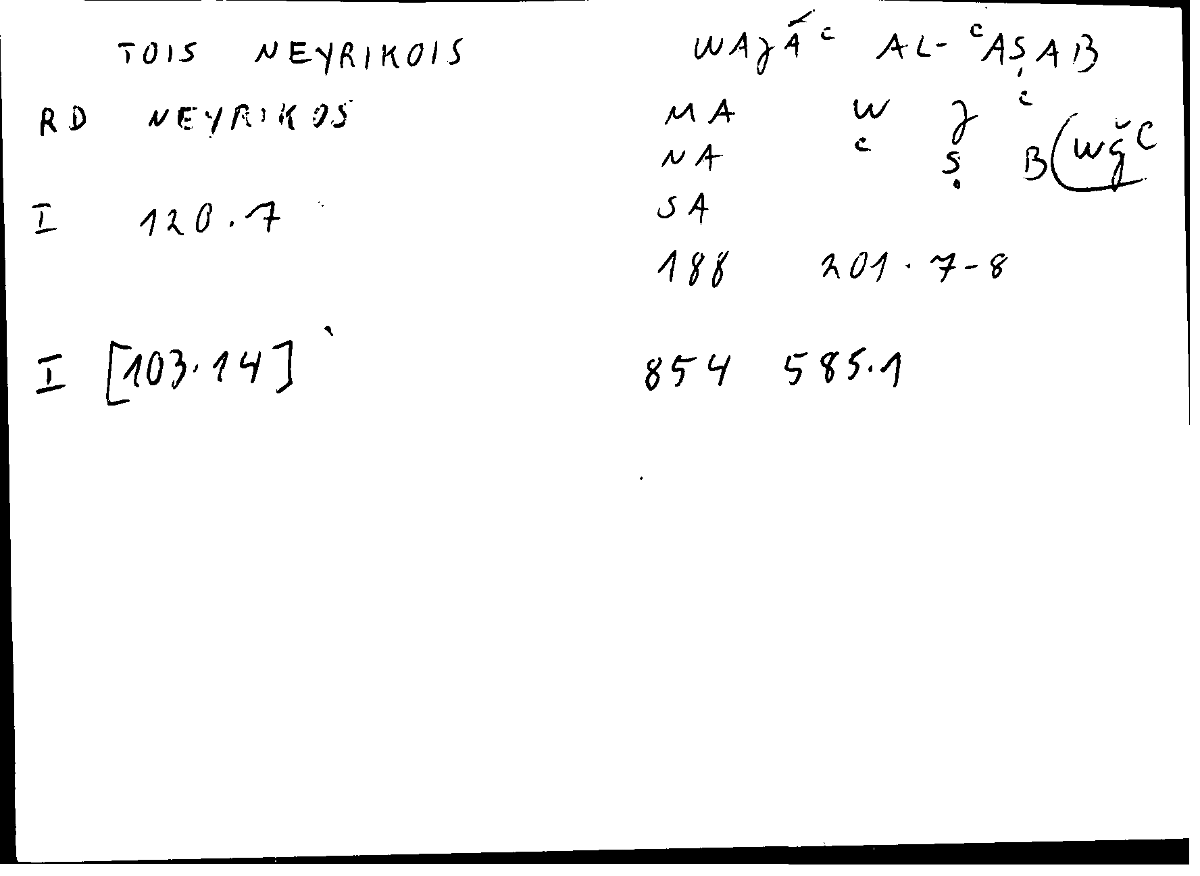 TOIS NEYRIKOIS WAJĀᶜ AL-ᶜAṢAB
RD NEYRIKOS MA W J ᶜ
NA ᶜ Ṣ B (wǧC
SA
I 120.7
188 201.7-8
I [103.14] 854 585.1